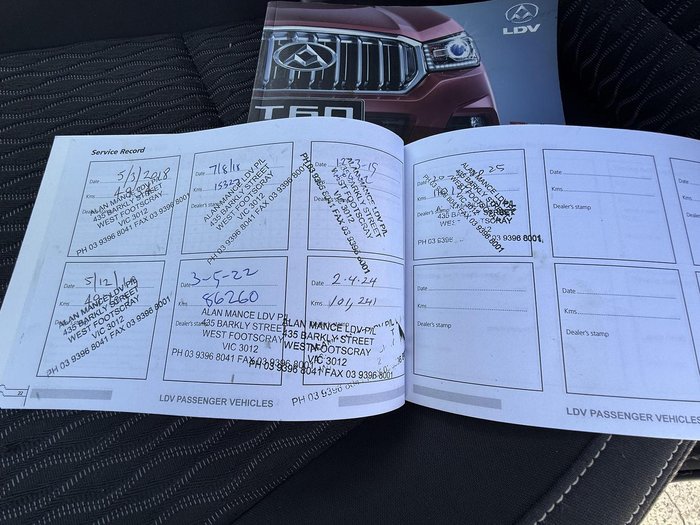 LDV
T60
Service Record
Date 5/3/2018
Kms
ALAN MANCE LDV P/L
435 BARKLY STREET
WEST FOOTSCRAY
VIC 3012
PH 03 9396 8041 FAX 03 9396 8001
Date 7/8/18
Kms
Dealer's
ALAN MANCE LDV P/L
435 BARKLY STREET
WEST FOOTSCRAY
VIC 3012
PH 03 9396 8041 FAX 03 9396 8001
Date
Kms
ALAN MANCE LDV P/L
435 BARKLY STREET
WEST FOOTSCRAY
VIC 3012
PH 03 9396 8041 FAX 03 9396 8001
Date 5/12/
Kms
ALAN MANCE LDV P/L
435 BARKLY STREET
WEST FOOTSCRAY
VIC 3012
PH 03 9396 8041 FAX 03 9396 8001
Date 3-5-22
Kms 86260
Dealer's
ALAN MANCE LDV P/L
435 BARKLY STREET
WEST FOOTSCRAY
VIC 3012
PH 03 9396 8041 FAX 03 9396 8001
Date 2.4.24
Kms 101,241
ALAN MANCE LDV P/L
435 BARKLY STREET
WEST FOOTSCRAY
VIC 3012
PH 03 9396 8041 FAX 03 9396 8001
PH 03 9396
22
LDV PASSENGER VEHICLES
Date 25
Kms
Dealer's
ALAN MANCE LDV P/L
435 BARKLY STREET
WEST FOOTSCRAY
VIC 3012
PH 03 9396 8001
Date
Kms
Dealer's stamp
Date
Kms
Dealer's stamp
Date
Kms
Dealer's stamp
LDV PASSENGER VEHICLES